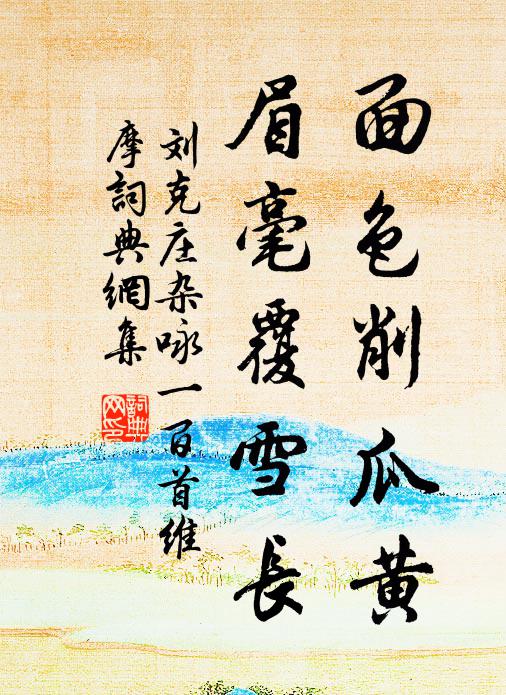 面色削瓜黄
眉毫覆雪長
刘克庄杂咏一百首维
摩詞典網集
詞典
网印